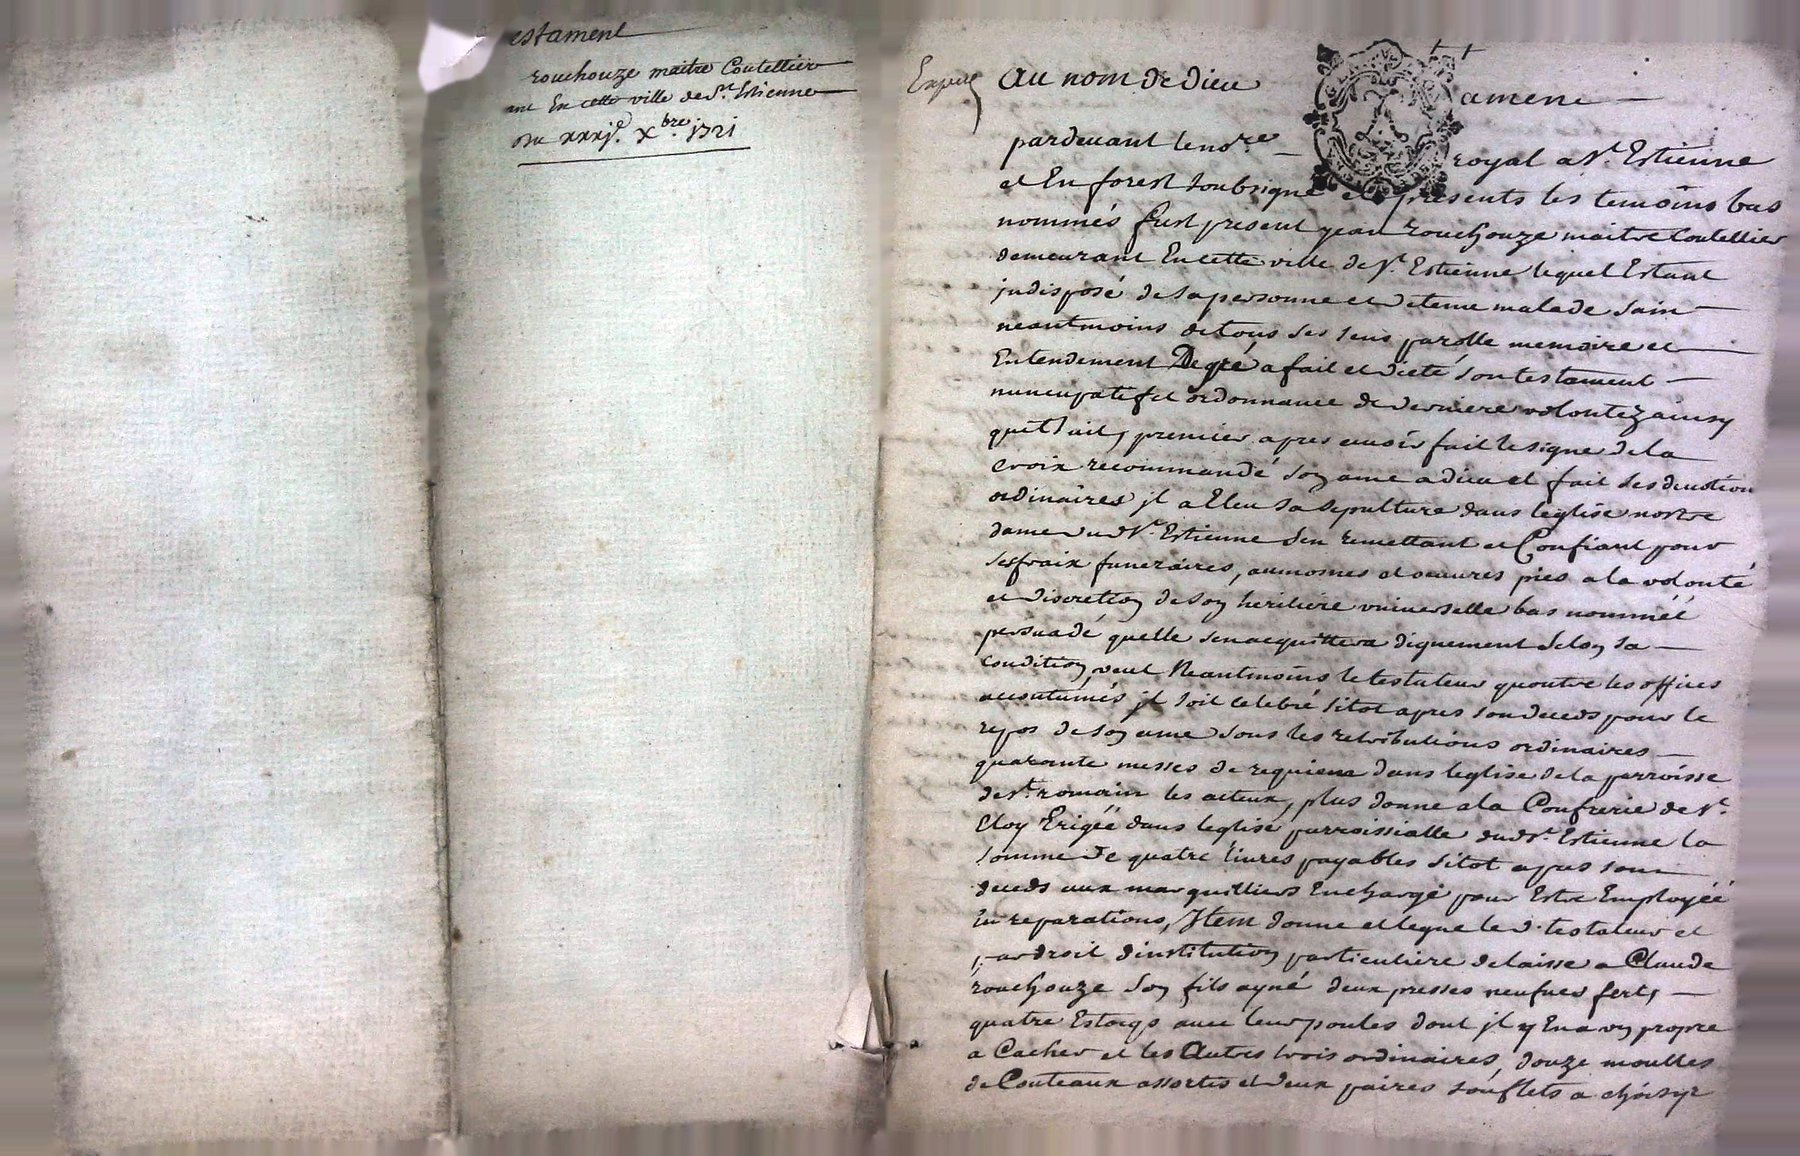 estament
rouchouze maitre Coutellier
ant En cette ville de St. Estienne
Du xxxje. Xbre. 1721
Expié
Au nom de dieu amene
pardevant le nore. royal a St. Estienne
et En forest soubsigné et presents les temoins bas
nommés fust present jean rouchouze maitre Coutellier
demeurant En cette ville de St. Estienne lequel Estant
jndisposé de sa personne et detenu malade sain
neantmoins de tous ses sens parolle memoire et
Entendement De gré a fait et dicté son testament
nuncupatif et ordonnance de derniere volontez ainsy
quil suit, premier apres avoir fait le signe de la
croix recommandé son ame a dieu et fait ses devotion
ordinaires jl a Eleu sa sepulture dans leglise nostre
dame dud St. Estienne sen remettant et Confiant pour
ses fraix funeraires, aumosnes et oeuvres pies a la volonté
et discretion de son heritiere universelle bas nommée
persuadé quelle senacquittera dignement selon sa
condition, veut Neantmoins le testateur quoutre les offices
accoutumés jl soit celebré sitot apres son deceds pour le
repos de son ame sous les retributions ordinaires
quarante messes de requiem dans leglise de la parroisse
de St. romain les atteux, plus donne a la Confrerie de St.
Eloy Erigée dans leglise parroissialle dud St. Estienne la
somme de quatre livres payables sitot apres son
deceds aux marguilliers En charge pour Estre Employéé
En reparations, Jtem donne et legue le d. testateur et
par droit dinstitution particuliere delaisse a Claude
rouchouze son fils ayné deux presses neufves fert,
quatre Estocgs avec leur poules dont jl y En a un propre
a Cacher et les Autres trois ordinaires, douze moulles
de Couteaux assortis et deux paires souflets a choisyr